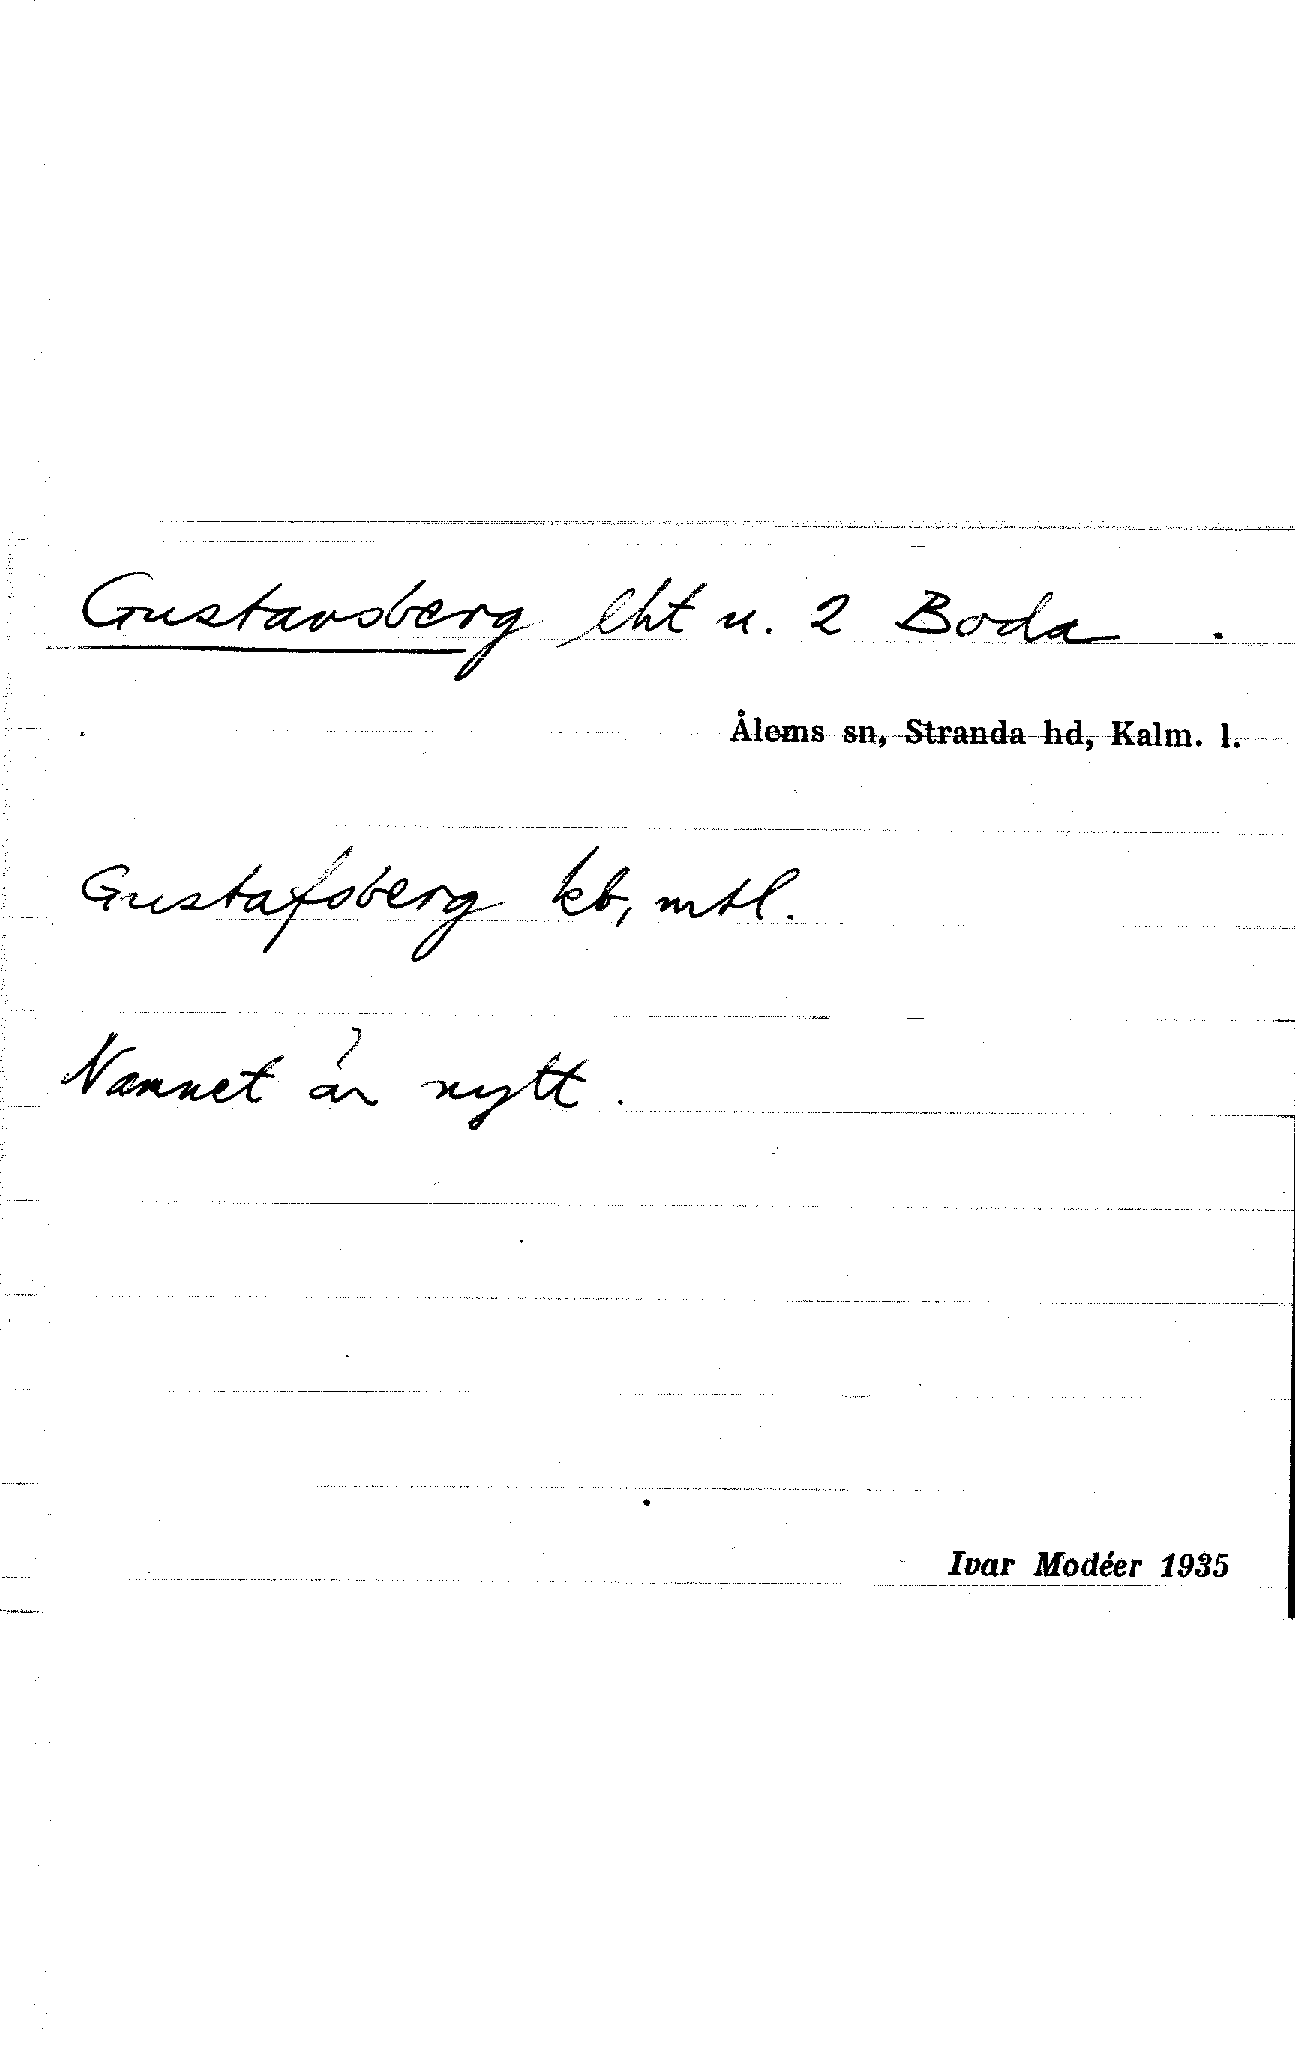 Gustavsberg lht u. 2 Boda .
Ålems sn, Stranda hd, Kalm. l.
Gustafsberg kb, mtl.
Namnet är nytt.
Ivar Modéer 1935